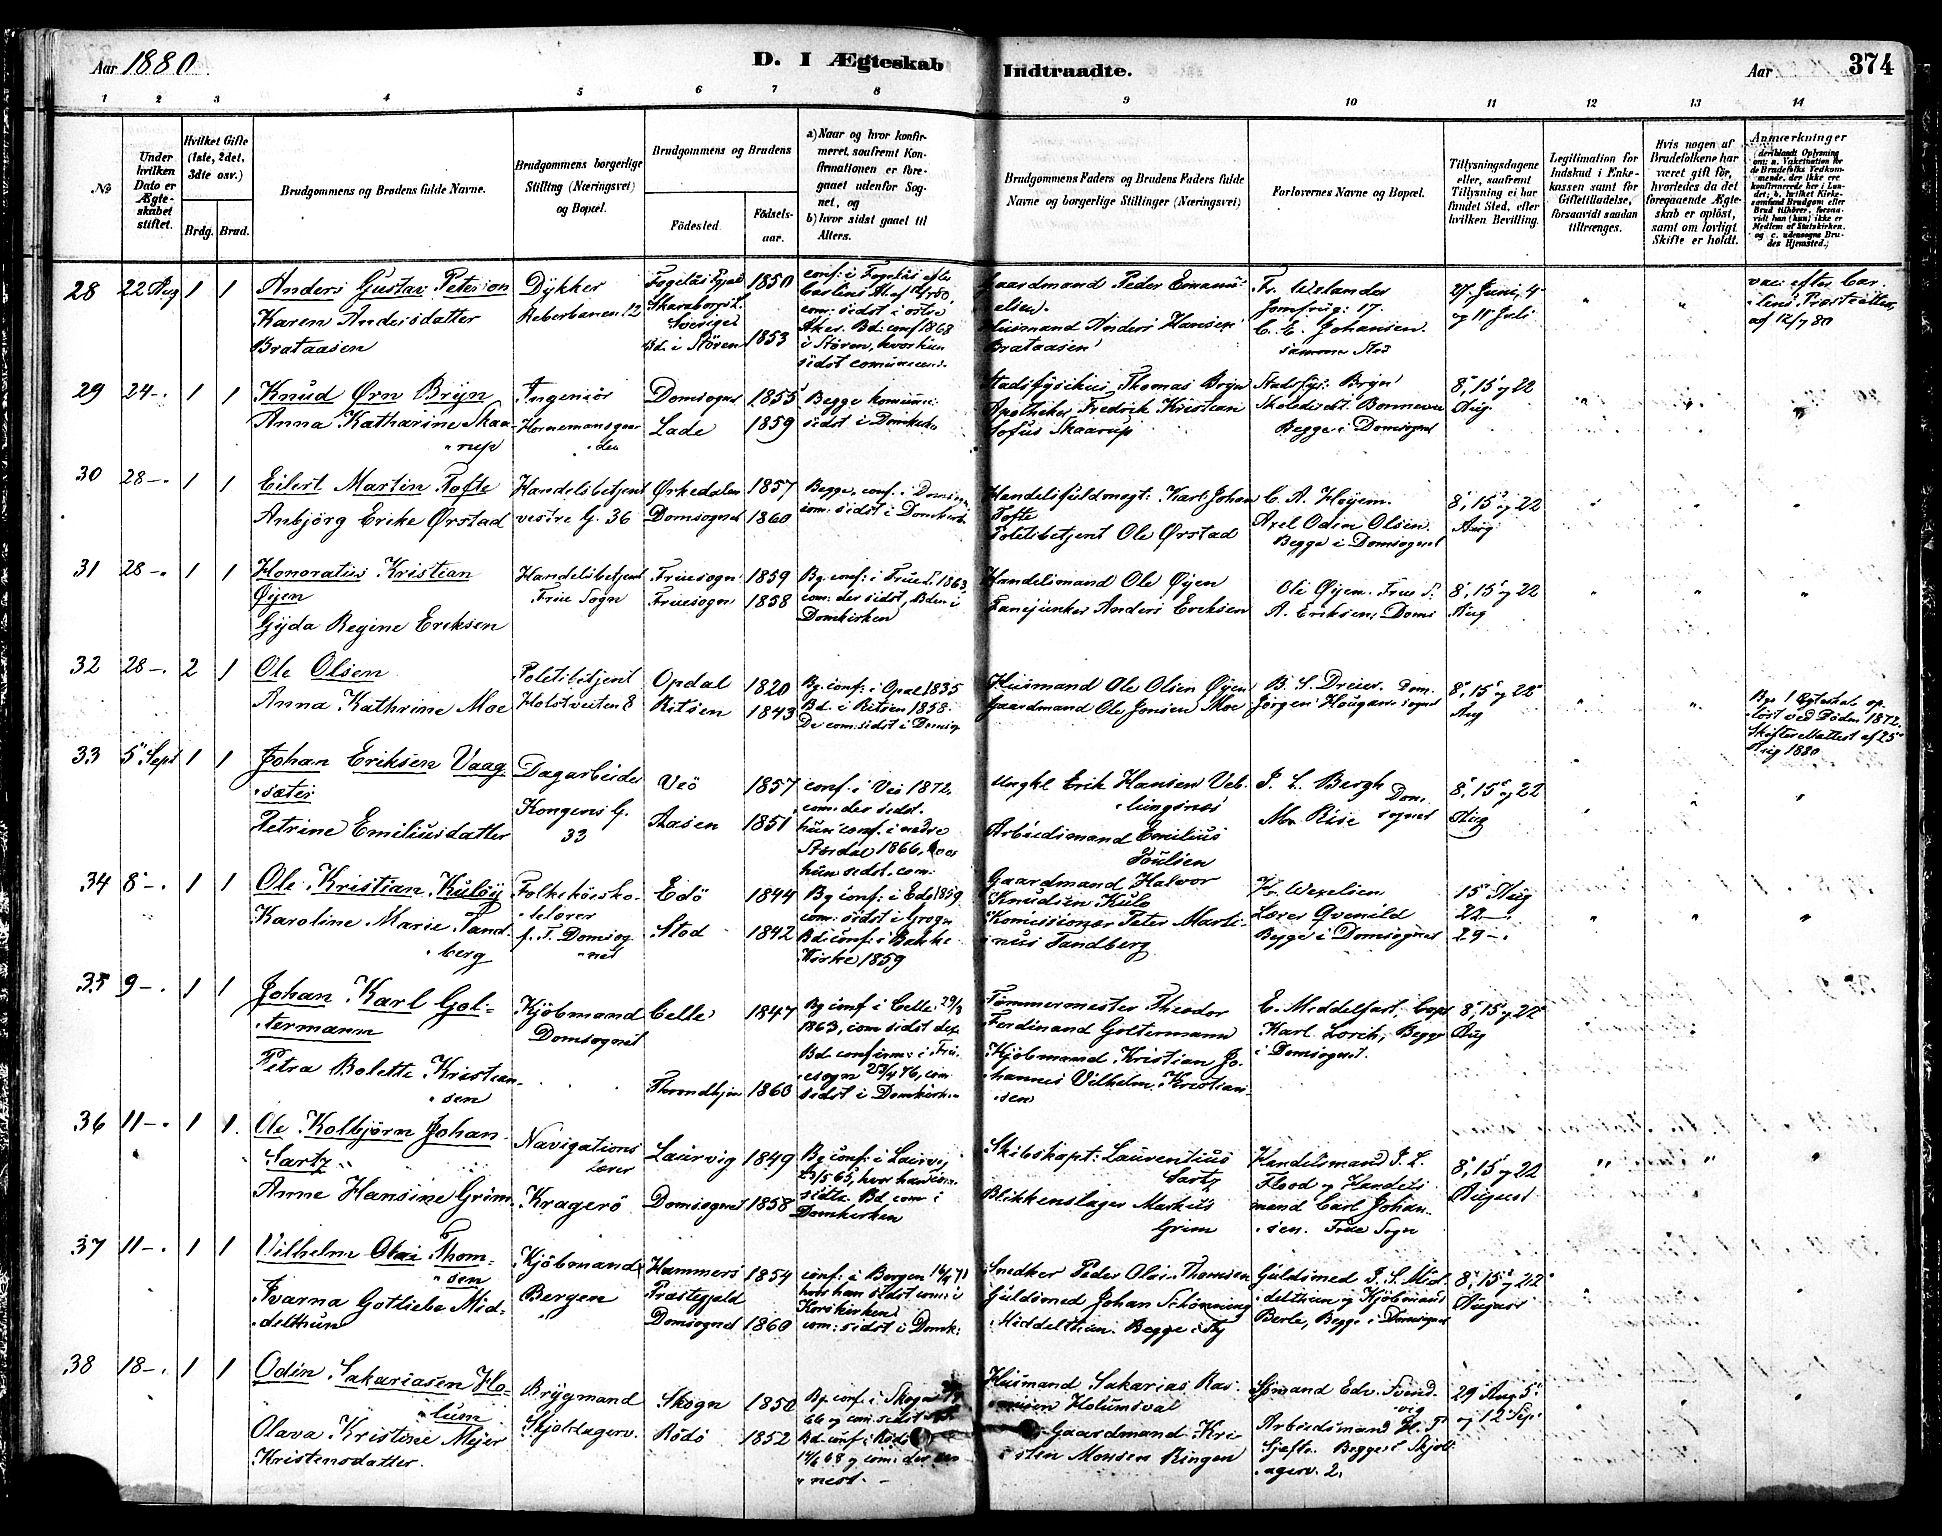 Aar 1880. D. I Ægteskab Indtraadte. Aar 374
1 2 3 4 5 6 7 8 9 10 11 12 13 14
No
Under hvilken Dato er Ægteskabet stiftet.
Hvilket Gifte (1ste, 2det, 3dte osv.)
Brdg. Brud.
Brudgommens og Brudens fulde Navne.
Brudgommens borgerlige Stilling (Næringsvei) og Bopæl.
Brudgommens og Brudens
Fødested. Fødselsaar.
a) Naar og hvor konfirmeret, saafremt Konfirmationen er foregaaet udenfor Sognet, og
b) hvor sidst gaaet til Alters.
Brudgommens Faders og Brudens Faders fulde Navne og borgerlige Stillinger (Næringsvei)
Forlovernes Navne og Bopæl.
Tillysningsdagene eller, saafremt Tillysning ei har fundet Sted, efter hvilken Bevilling.
Legitimation for Indskud i Enkekassen samt for Giftetilladelse, forsaavidt saadan tiltrænges.
Hvis nogen af Brudefolkene har været gift før, hvorledes da det foregaaende Ægteskab er opløst, samt om lovligt Skifte er holdt.
Anmærkninger
28 22 Aug 1 1
Anders Gustav Peterson
Karen Andersdatter
Brataasen
Dykker
Reberbanen 12
Sverige
Bd. i Støren
1850
1853
conf. i Fogelås efter
com. sidst i østre
Aker. Bd. conf 1868
i Støren, hvor hun
sidst comunicerer.
Gaardmand Peder Emanuelsen
Husmand Anders Hansen
Brataasen
Fr. Welander
Jomfrug: 17.
C. E. Johansen
samme Sted
27 Juni, 4
og 11 Juli
af 12/7 80
29 24-. 1 1
Knud Ørn Bryn
Anna Katharine Skaarup
Ingeniör
Domsognet
Lade
1855
1859
Begge komuni:
sidst i Domkirk.
Stadsfysikus Thomas Bryn
Apotheker Fredrik Kristian
Sofus Skaarup
Stadsfys: Bryn
Begge i Domsognet
8, 15 og 22
Aug.
30 28-. 1 1
Eilert Martin Tofte
Anbjörg Erike Ørstad
Handelsbetjent
vestre G. 36
Ørkedalen
Domsognet
1857
1860
Begge conf. i Domsogn
com. sidst i Domkirk.
Handelsfuldmegt: Karl Johan
Tofte
Politibetjent Ole Ørstad
C. A. Høyem
Axel Odin Olsen
Begge i Domsognet
8, 15 og 22
Aug
31 28-. 1 1
Honoratius Kristian
Øyen
Gyda Regine Eriksen
Handelsbetjent
Frue Sogn
Fruesogn
Fruesogn
1859
1858
com: der sidst, Bden i
Domkirken
Handelsmand Ole Øyen
Fanejunker Anders Eriksen
Ole Øyen. Frue S.
A. Eriksen, Doms
8, 15 og 22
Aug
32 28-. 2 1
Ole Olsen
Anna Kathrine Moe
Politibetjent
Holstveiten 8
Opdal
Ritsen
1820
1843
Bg. conf: i Opdal 1835
Bd. i Ritsen 1858.
De com: sidst i Domsog
Husmand Ole Olsen Øyen
Gaardmand Ole Jonsen Moe
B. S. Dreier. Dom-
Jörgen Hougan sognet
8, 15 og 22
Aug
Bgs 1 Ægteskab op-
löst ved Döden 1872.
Skifteattest af 25
Aug 1880
33 5 Sept 1 1
Johan Eriksen Vaag-
sæter
Petrine Emiliusdatter
Dagarbeider
Kongens G.
33
Veö
Aasen
1857
1851
conf. i Veö 1872,
com: der sidst.
hun conf. i nedre
Stördal 1866, hvor
hun sidst com:
Ungkl Erik Hansen Veb-
lungsnes
Arbeidsmand Emilius
Poulsen
P. L. Bergh
Dom-
sognet
8, 15 og 22
Aug
34 8-. 1 1
Ole Kristian Kuløy
Karoline Marie Tand-
berg
Folkehöisko-
lelærer
f. T. Domsog-
net
Edö
Stod
1844
1842
Bg conf: i Edö 1859
Bd. conf. i Bakke
Kirke 1859
Gaardmand Halvor
Knudsen Kulö
Komissionær Peter Marti-
nus Tandberg
Kr. Wexelsen
Lærer Qvenild
Begge i Domsognet
15 Aug
22-.
29-.
35 9-. 1 1
Johan Karl Gol-
termann
Petra Bolette Kristian-
sen
Kjöbmand
Domsognet
Celle
Throndhjem
1847
1860
Bg conf i Celle 29/3
1863, com sidst der.
Bd. confirm: i Fru-
esogn 23/4 76, com
sidst i Domkirk.
Tömmermester Theodor
Ferdinand Goltermann
Kjöbmand Kristian Jo-
hannes Vilhelm Kristian-
sen
E. Middelfart, Capt
Karl Lorch, Begge
i Domsognet.
8, 15 og 22
Aug
36 11-. 1 1
Ole Kolbjörn Johan
Sartz
Anne Hansine Grim
Navigations
Lærer
Kragerö
Laurvig
Domsognet
1849
1858
Bg conf: i Laurvig
sidst. Bd. com i
Domkirken
Skibskapt: Laurentius
Sartz
Blikkenslager Markus
Grim
Handelsmand P. L.
Flood og Handels-
mand Carl Johan-
sen. Frue Sogn
8, 15 og 22
August
37 11-. 1 1
Vilhelm Olai Thom-
sen
Ivarna Gotliebe Mid-
delthun
Kjöbmand
Bergen
Hammers
Præstegjeld
Domsognet
1854
1860
conf: i Bergen 16/4 71
hvor han sidst com: i
Korskirken
com: sidst i Domk:
Snedker Peder Olsen Thomsen
Guldsmed Johan Schönning
Middelthun. Begge i Thj
Guldsmed J. S. Mid-
delthun og Kjöbmand
Berle, Begge i Domsognet
8, 15 og 22
August
38 18-. 1 1
Odin Sakariasen Ho-
lum
Olava Kristine Meyer
Kristensdatter.
Brygmand
Skjoldagerv.
Skogn
Rödö
1850
1852
Bg. conf. i Skogn
66 og com sidst
Bd. conf. i Rödö
14/6 68 og com: der se-
nest. -
Husmand Sakarias Ras-
musen Holumsval
Gaardmand Kri-
sten Monsen Ringen
Sömand Edv. Svend-
vig
Arbeidsmand H. P.
Gjefte. Begge i Skjol-
agerv. 2.
29 Aug. 5
og 12 Sep.